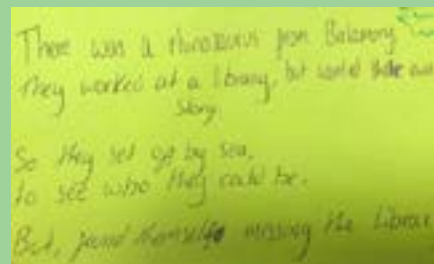 There was a rhinosaurus from Balamory
They worked at a library, but wanted their own
Story.
So they set off by sea,
to see who they could be.
But, found themselfe missing the Librar